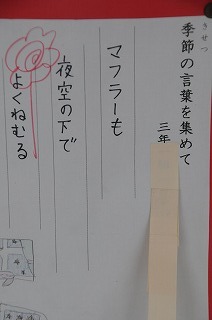 きせつ
季節の言葉を集めて
三年
マフラーも
夜空の下で
よくねむる